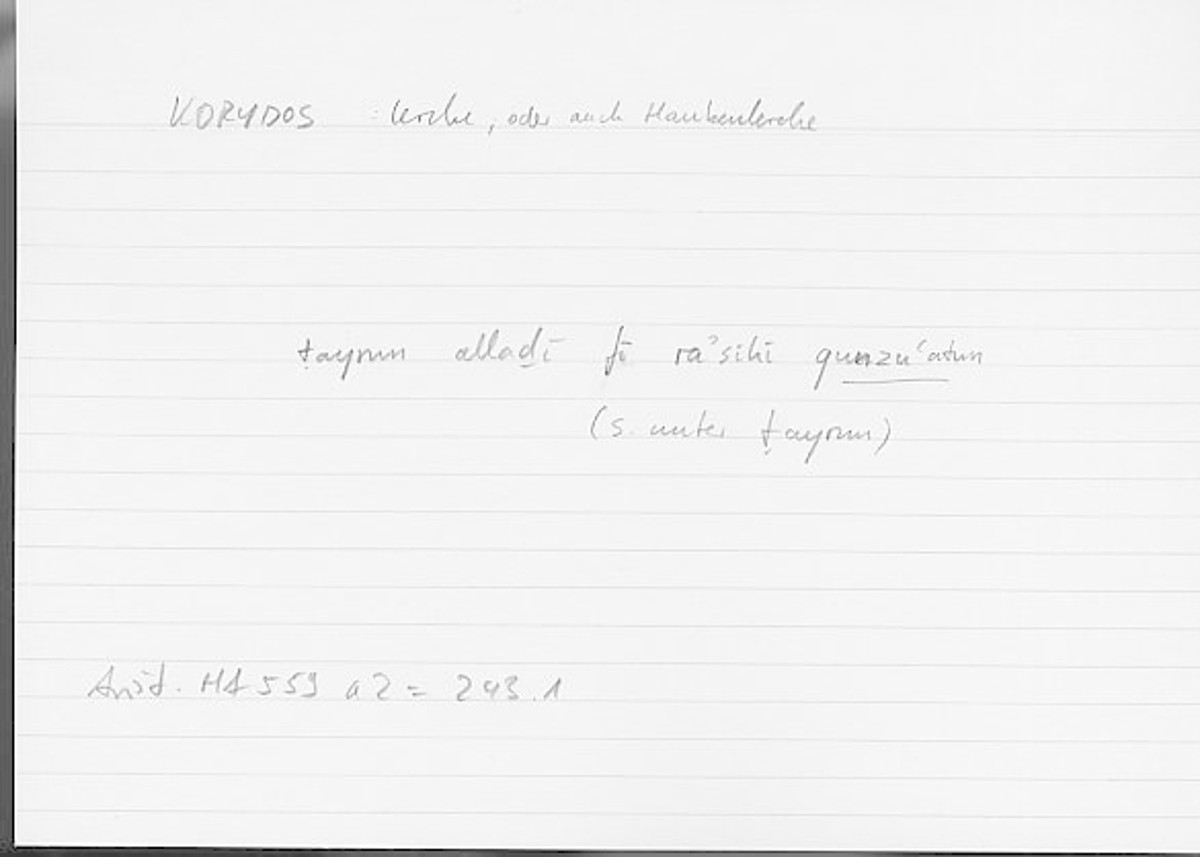 KORYDOS : Lerche, oder auch Haubenlerche
ṭayrun alladī fī ra'sihī qunzu'atun
(s. unter ṭayrun)
Arist. HA 559 a 2 = 243.1